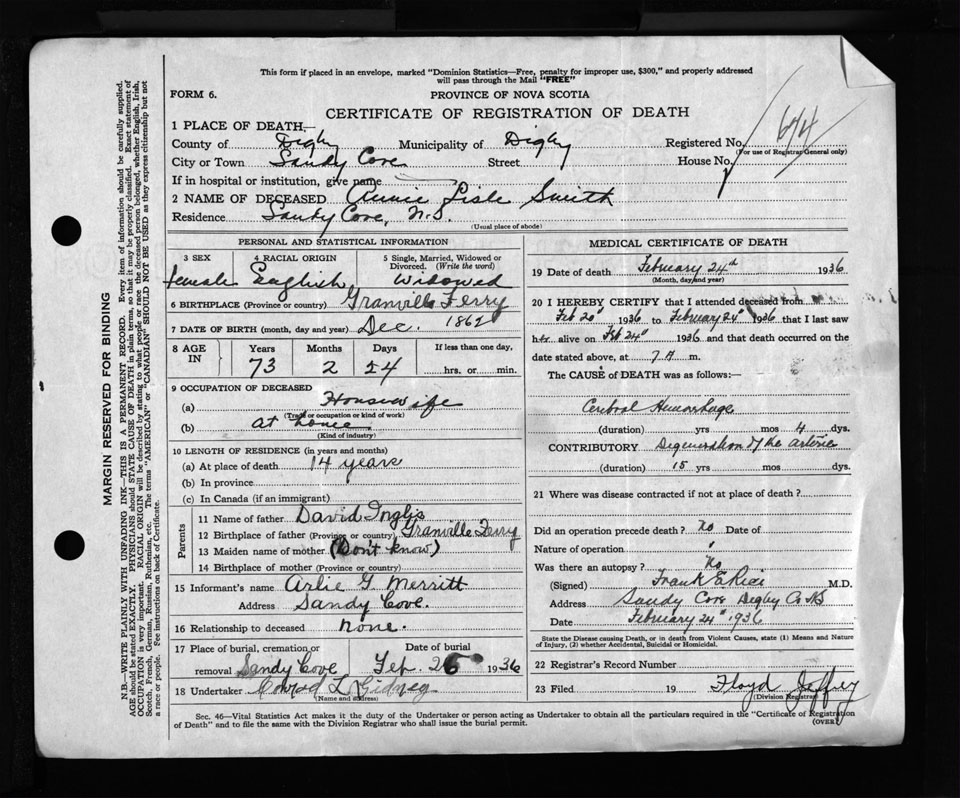 This form if placed in an envelope, marked "Dominion Statistics—Free, penalty for improper use, $300," and properly addressed
will pass through the Mail "FREE"
FORM 6.
PROVINCE OF NOVA SCOTIA
CERTIFICATE OF REGISTRATION OF DEATH
1 PLACE OF DEATH,—
County of Digby Municipality of Digby Registered No. 674
(For use of Registrar General only)
City or Town Sandy Cove Street House No.
If in hospital or institution, give name
2 NAME OF DECEASED Annie Lisle Smith
Residence Sandy Cove, N.S.
(Usual place of abode)
PERSONAL AND STATISTICAL INFORMATION
3 SEX female
4 RACIAL ORIGIN English
5 Single, Married, Widowed or
Divorced. (Write the word)
Widowed
6 BIRTHPLACE (Province or country) Granville Ferry
7 DATE OF BIRTH (month, day and year) Dec. 1862
8 AGE IN
Years Months Days If less than one day,
73 2 24 hrs. or min.
9 OCCUPATION OF DECEASED
(a) Housewife
(Trade or occupation or kind of work)
(b) at home
(Kind of industry)
10 LENGTH OF RESIDENCE (in years and months)
(a) At place of death 14 years
(b) In province
(c) In Canada (if an immigrant)
Parents
11 Name of father David Inglis
12 Birthplace of father (Province or country) Granville Ferry
13 Maiden name of mother (Don't know)
14 Birthplace of mother (Province or country)
15 Informant's name Arlie G. Merritt
Address Sandy Cove.
16 Relationship to deceased none.
17 Place of burial, cremation or
removal Sandy Cove
Date of burial
Fep. 26 1936
18 Undertaker Conrad L. Gidney
(Name and address)
MEDICAL CERTIFICATE OF DEATH
19 Date of death February 24th 1936
(Month, day and year)
20 I HEREBY CERTIFY that I attended deceased from
Feb 20" 1936 to February 24" 1936 that I last saw
her alive on Feb 24" 1936 and that death occurred on the
date stated above, at 7 A m.
The CAUSE of DEATH was as follows:—
Cerebral Hemorrhage
(duration) yrs mos 4 dys.
CONTRIBUTORY Degeneration of the arteries
(duration) 15 yrs mos dys.
21 Where was disease contracted if not at place of death?
Did an operation precede death? No Date of
Nature of operation
Was there an autopsy? No
(Signed) Frank E Rice M.D.
Address Sandy Cove Digby Co NS
Date February 24" 1936
State the Disease causing Death, or in death from Violent Causes, state (1) Means and Nature
of Injury, (2) whether Accidental, Suicidal or Homicidal.
22 Registrar's Record Number
23 Filed 19 Floyd Jeffrey
(Division Registrar)
Sec. 46—Vital Statistics Act makes it the duty of the Undertaker or person acting as Undertaker to obtain all the particulars required in the "Certificate of Registration
of Death" and to file the same with the Division Registrar who shall issue the burial permit.
(OVER)
MARGIN RESERVED FOR BINDING
N.B.—WRITE PLAINLY WITH UNFADING INK—THIS IS A PERMANENT RECORD. Every item of information should be carefully supplied.
AGE should be stated EXACTLY. PHYSICIANS should STATE CAUSE OF DEATH in plain terms, so that it may be properly classified. Exact statement of
OCCUPATION is very important. RACIAL ORIGIN will be described by stating to what people or race the deceased person belonged, whether English, Irish,
Scotch, French, German, Russian, Ruthenian, etc. The terms "AMERICAN" or "CANADIAN" SHOULD NOT BE USED as they express citizenship but not
a race or people. See instructions on back of Certificate.